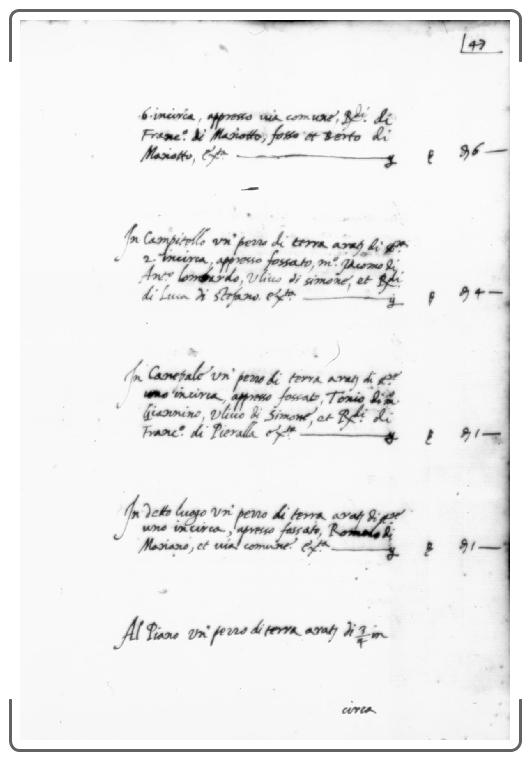 47
6. incirca, appresso via comune, Rdi di
Franc.o di Mariotto, fosso et Berto di
Mariotto, &
6
In Campitello un' pezzo di terra arat. di
2 incirca, appresso fossato, m.o Jacomo di
Ant.o lombardo, Ulivo di simone, et Rdi
di Luca di Stefano.
4
In Canepale un' pezzo di terra arat. di
uno incirca, appresso fossato, Tonio di
Giannino, Ulivo di Simone, et Rdi di
Franc.o di Pieralla
1
In detto luogo un' pezzo di terra arat. di
uno incirca, apresso fossato, Romolo di
Mariano, et via comune.
1
Al Piano un' pezzo di terra arat. di 3/4 in
circa